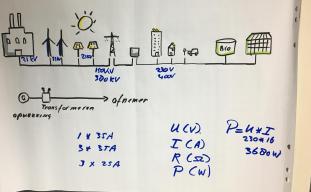 BIO
150kV
380kV
230V
400V
Transformeren
opwekking
afnemer
1 * 35A
3 * 35A
3 * 25A
U (V)
I (A)
R (Ω)
P (W)
P = U * I
230 * 16
3680W